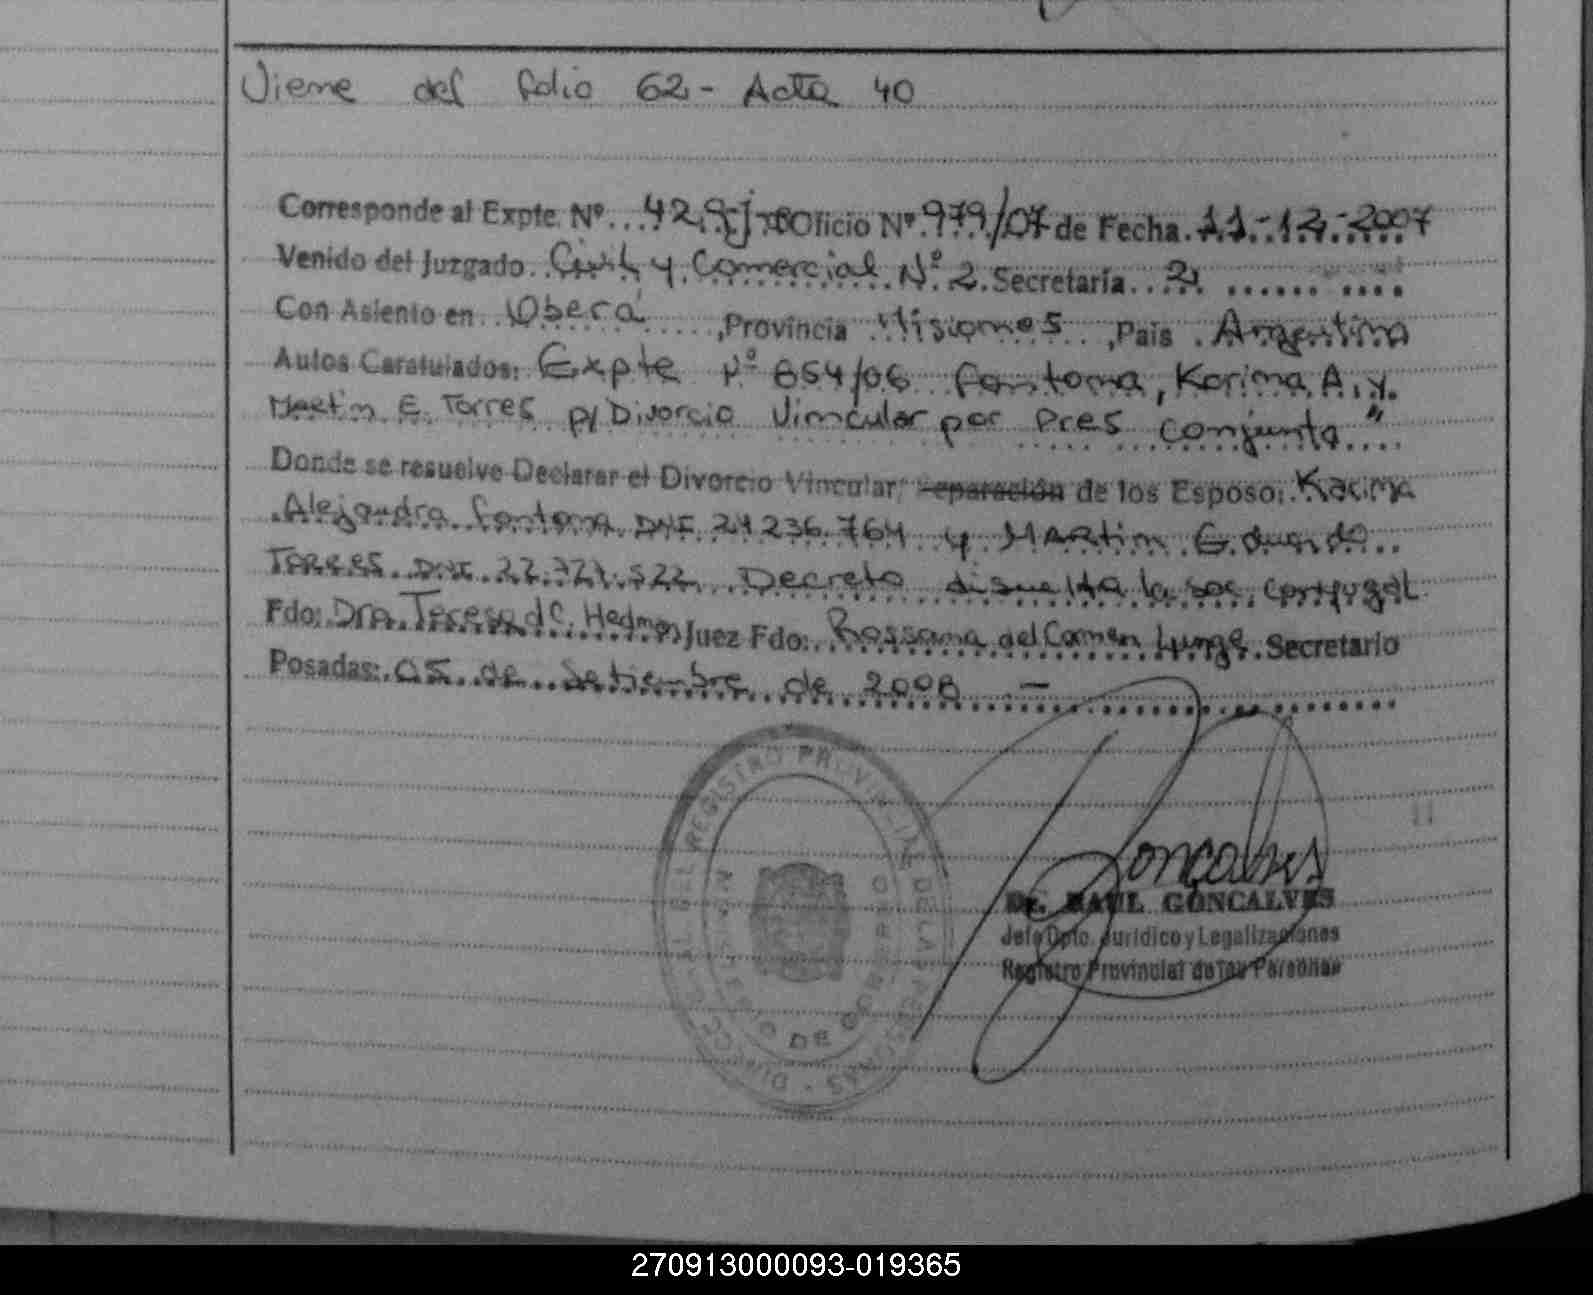 Viene del folio 62- Acta 40
Corresponde al Expte. Nº Oficio Nº 979/07 de Fecha 11-12-2007
Venido del Juzgado Civil y Comercial Nº 2 Secretaría 2
Con Asiento en Oberá, Provincia Misiones, País Argentina
Autos Caratulados: Expte Nº 654/06 Fontana, Karina A. y
Martin E. Torres p/ Divorcio Vincular por Pres conjunta"
Donde se resuelve Declarar el Divorcio Vincular, Separación de los Esposo: Karina
Alejandra Fontana DNI 24.236.764 y Martin Eduardo
Torres DNI Decreto disuelta la soc. conyugal
Fdo: Dra. Teresa del C. Hedman Juez Fdo: Rossana del Carmen Secretario
Posadas: 05 de Setiembre de 2008 -
REGISTRO PROVINCIAL DE LAS PERSONAS
MINISTERIO DE GOBIERNO
Goncalves
Dr. RAUL GONCALVES
Jefe Dpto. Jurídico y Legalizaciones
Registro Provincial de las Personas
270913000093-019365